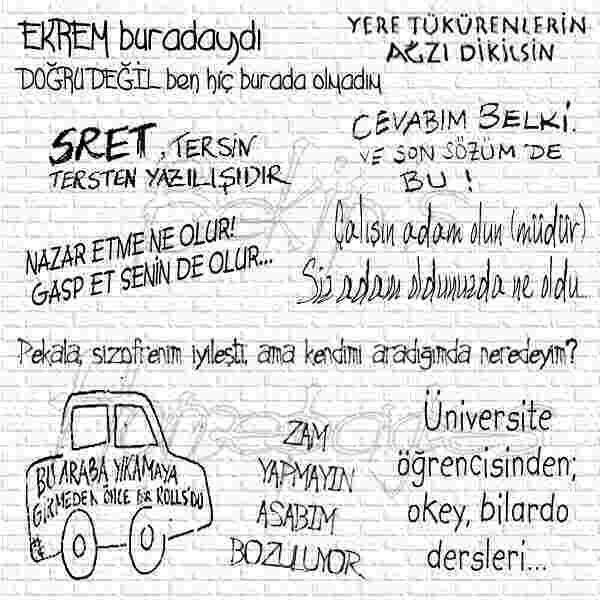 EKREM buradaydı
DOĞRU DEĞİL ben hiç burada olmadım
YERE TÜKÜRENLERİN
AĞZI DİKİLSİN
SRET, TERSİN
TERSTEN YAZILIŞIDIR
CEVABIM BELKİ.
VE SON SÖZÜM DE
BU!
NAZAR ETME NE OLUR!
GASP ET SENİN DE OLUR...
Çalışın adam olun (müdür)
Siz adam oldunuzda ne oldu...
Pekala, şizofrenim iyileşti, ama kendimi aradığımda neredeyim?
BU ARABA YIKAMAYA
GİRMEDEN ÖNCE BİR ROLLS'DU
ZAM
YAPMAYIN
ASABIM
BOZULUYOR
Üniversite
öğrencisinden;
okey, bilardo
dersleri...